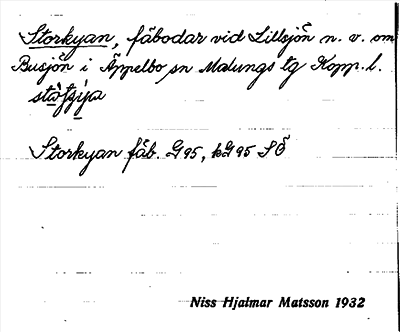 Storkyan, fäbodar vid Lillsjön n. v. om
Busjön i Äppelbo sn Malungs tg Kopp. l.
Storkyan fäb. G95, kG95 SÖ
Niss Hjalmar Matsson 1932